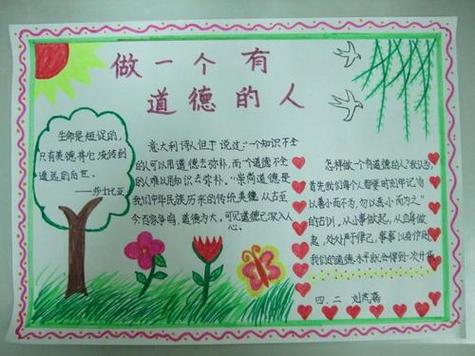 做一个有
道德的人
生命是短促的,
只有美德将它流传到
遥远的后世。
——莎士比亚
意大利诗人但丁说过:“一个知识不全
的人可以用道德去弥补,而一个道德不全
的人难以用知识去弥补。”崇尚道德是
我们中华民族历来的传统美德,从古至
今百家争鸣,道德为大,可见道德已深入人
心。
怎样做一个有道德的人?我认为,
首先我们每个人都要时刻牢记“勿
以善小而不为,勿以恶小而为之”
的古训,从小事做起,从自身做
起,处处严于律己,事事以身作则,
我们的道德水平就会得到一次升华
四、二 刘